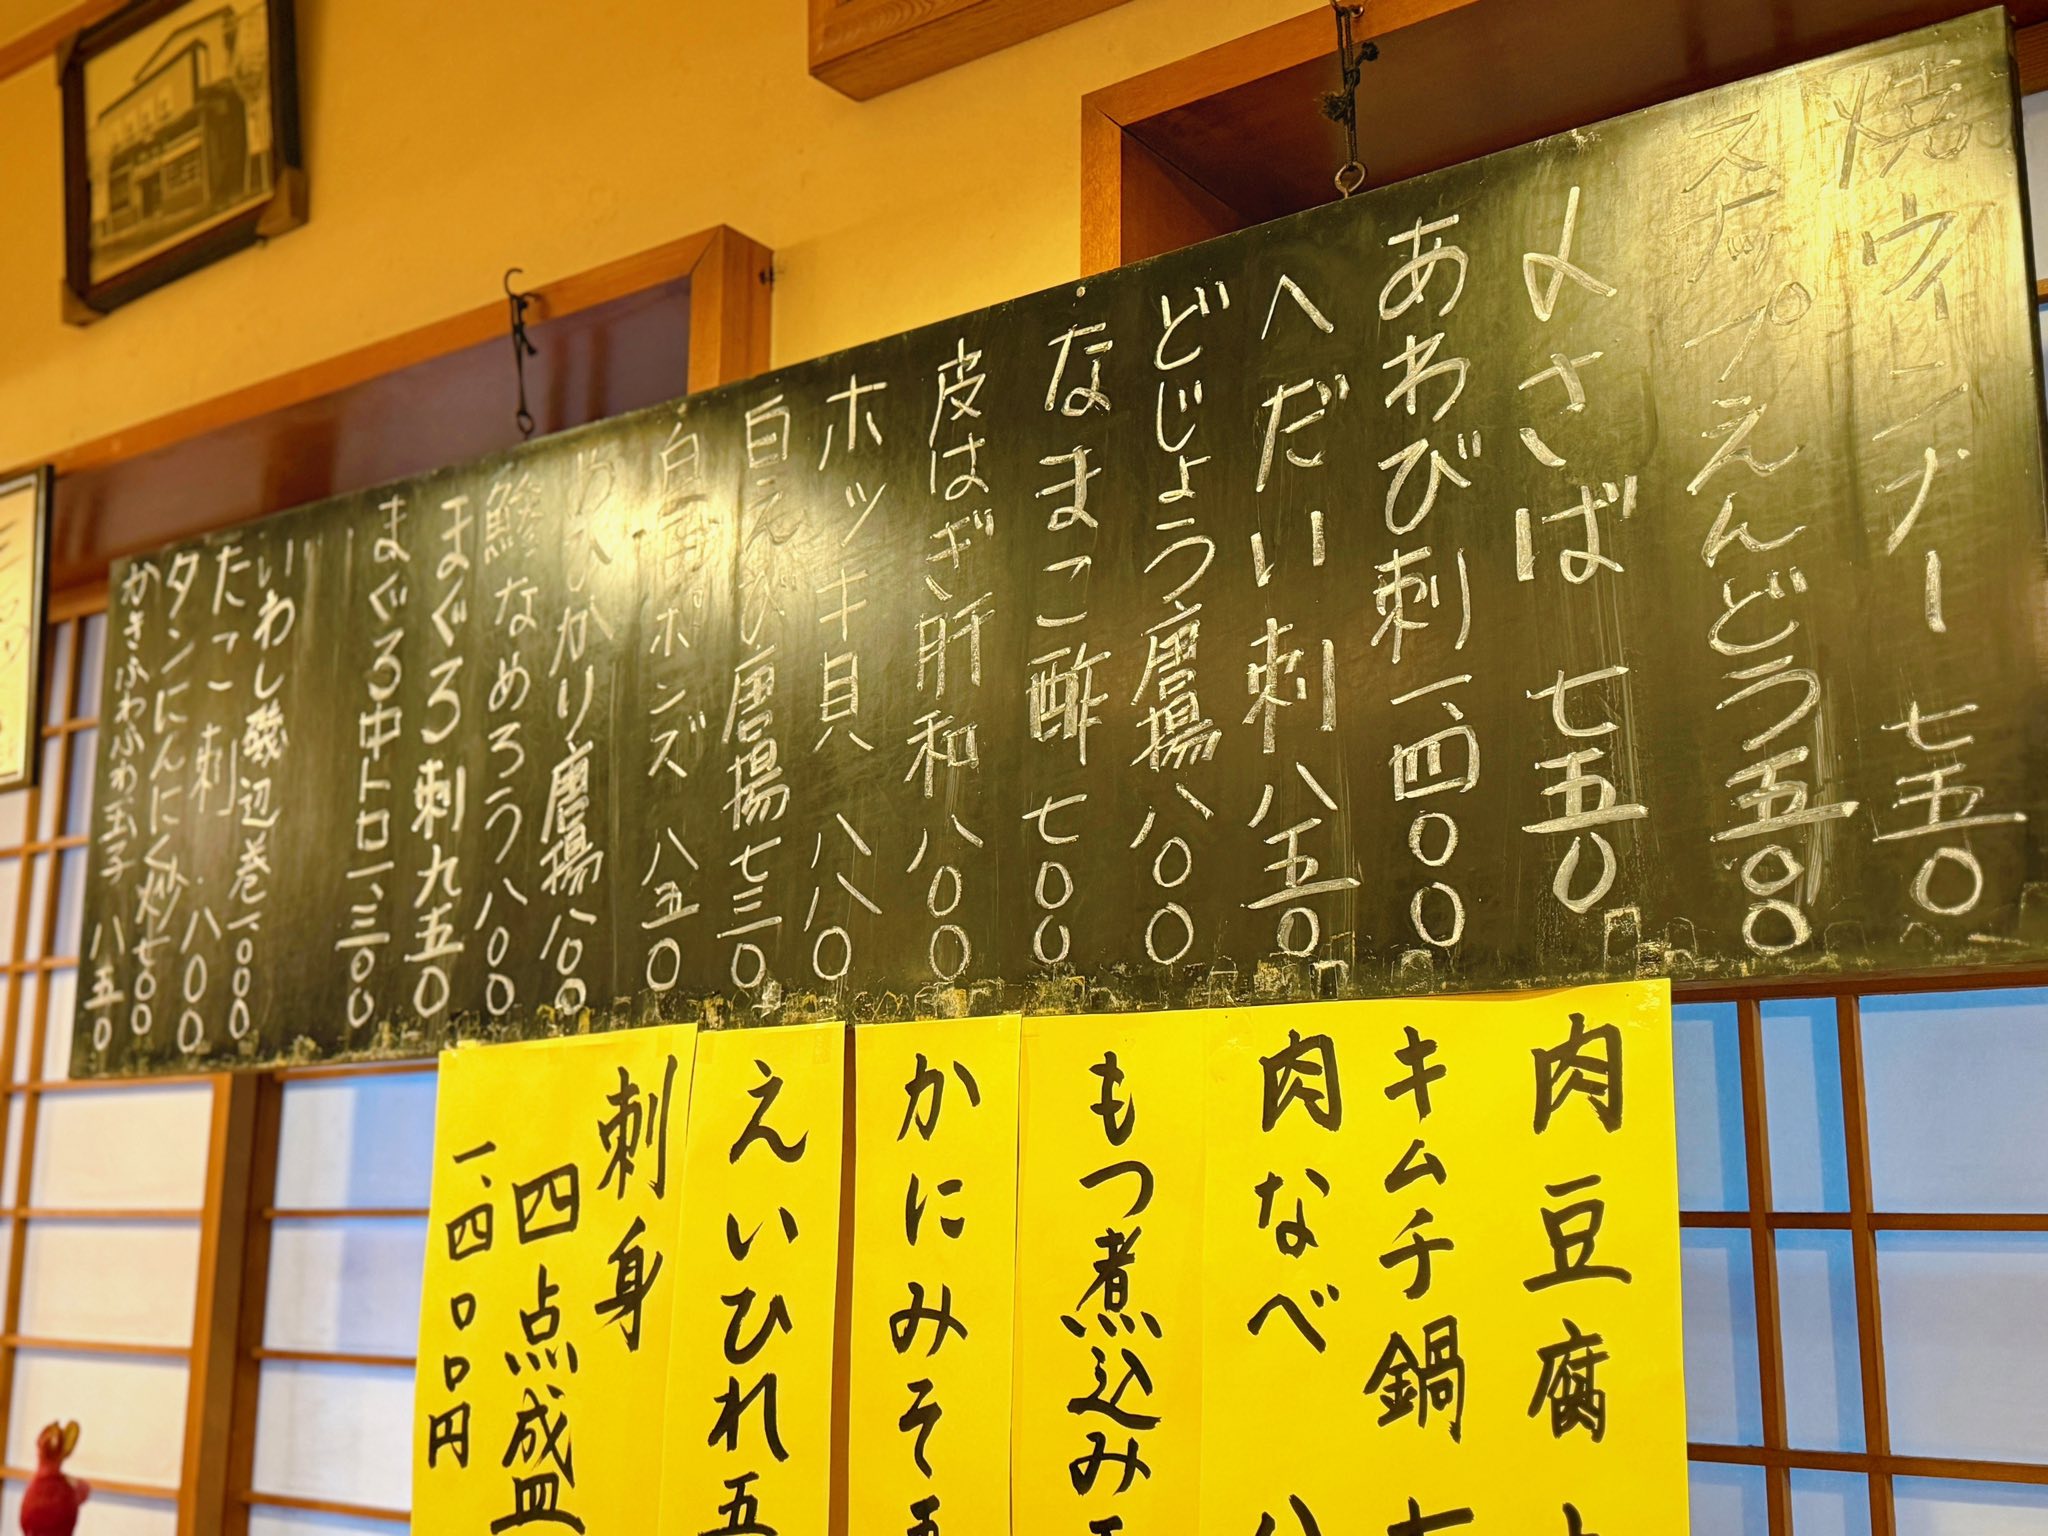 焼ウインナー 七五〇
スナップえんどう 五〇〇
〆さば 七五〇
あわび刺 一、四〇〇
へだい刺 八五〇
どじょう唐揚 八〇〇
なまこ酢 七〇〇
皮はぎ肝和 八〇〇
ホッキ貝 八八〇
白えび唐揚 七三〇
白子ポンズ 八五〇
めひかり唐揚 八〇〇
鯵なめろう 八〇〇
まぐろ刺 九五〇
まぐろ中トロ 一、三〇〇
いわし磯辺巻 一、〇〇〇
たこ刺 八〇〇
タンにんにく炒 七〇〇
かきふわふわ玉子 八五〇
肉豆腐
キムチ鍋 七
肉なべ 八
もつ煮込み
かにみそ 五
えいひれ 五
刺身
四点盛
一、四〇〇円